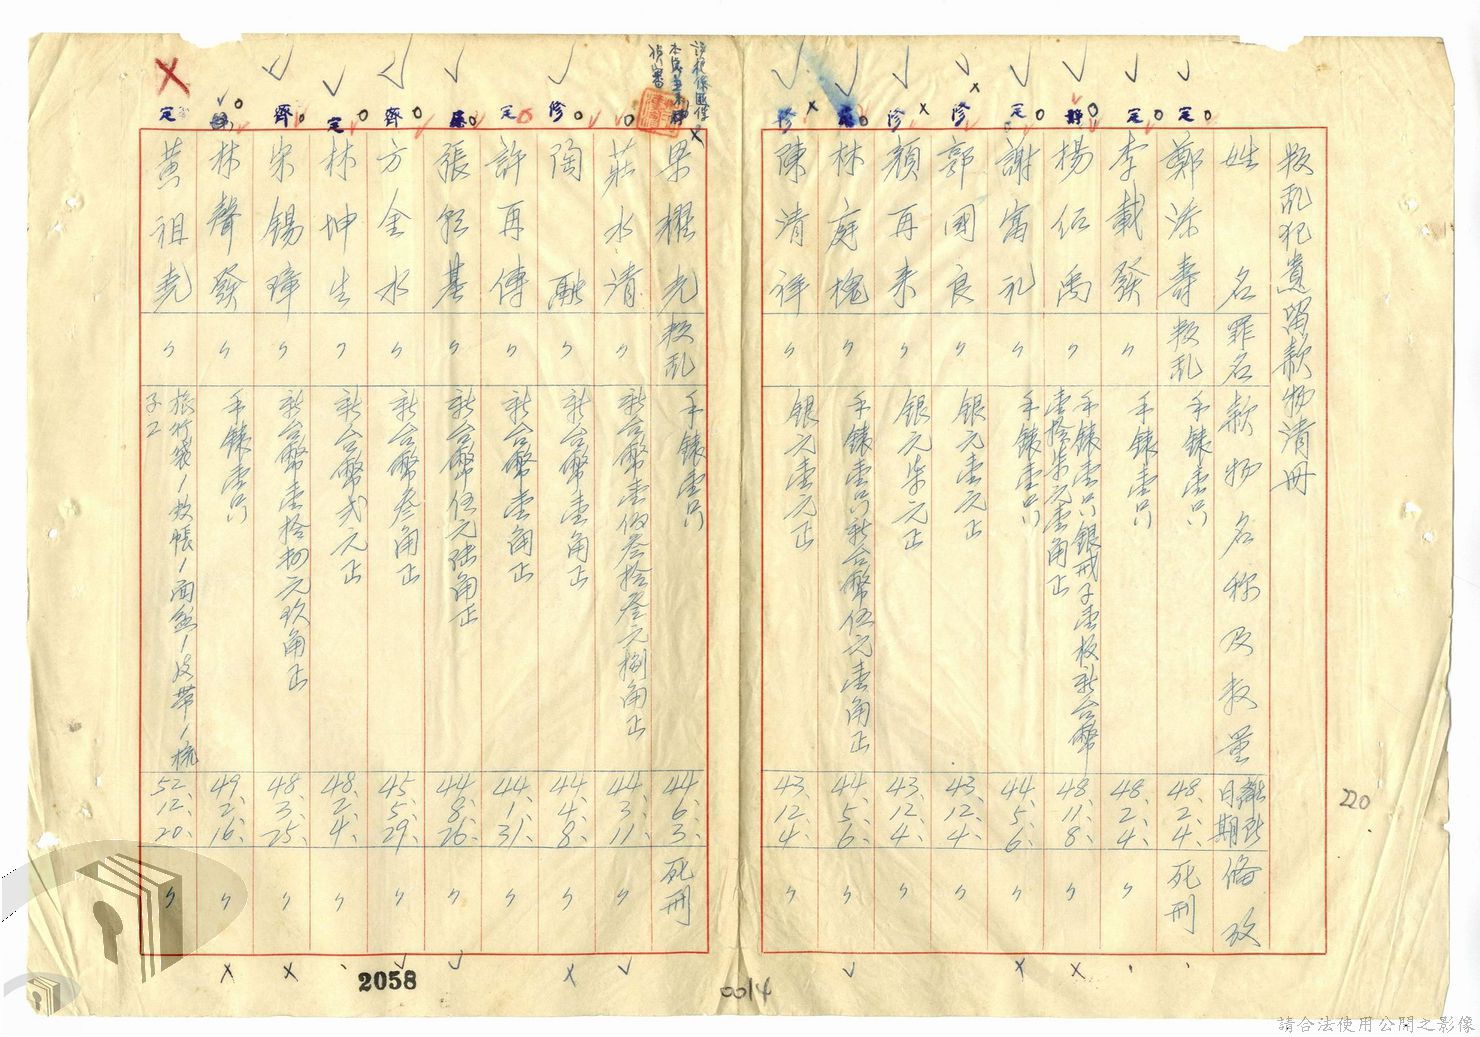 叛乱犯遺留款物清冊
姓名 罪名 款物名称及数量 離所日期 備攷
定 鄭添壽 叛乱 手錶壹只 48、2、4、 死刑
定 李載發 〃 手錶壹只 48、2、4、 〃
靜 楊佰禹 〃 手錶壹只銀戒子壹枚新台幣
壹拾柒元壹角正 48、11、8、 〃
定 謝富礼 〃 手錶壹只 44、5、6、 〃
診 郭国良 〃 銀元壹元正 43、12、4、 〃
診 顏再来 〃 銀元柒元正 43、12、4、 〃
林庭槐 〃 手錶壹只新台幣伍元壹角正 44、5、6、 〃
診 陳清祥 〃 銀元壹元正 43、12、4、 〃
220
0014
梁耀光 叛乱 手錶壹只 44、6、3、 死刑
莊水清 〃 新台幣壹佰叁拾叁元捌角正 44、3、11、 〃
修 陶融 〃 新台幣壹角正 44、4、8、 〃
定 許再傳 〃 新台幣壹角正 44、1、31、 〃
張 基 〃 新台幣伍元陸角正 44、8、26、 〃
齊 方金水 〃 新台幣叁角正 45、5、29、 〃
定 林坤生 〃 新台幣弍元正 48、2、4、 〃
齊 宋錫璋 〃 新台幣壹拾 元玖角正 48、3、25、 〃
林聲發 〃 手錶壹只 49、2、16、 〃
定 黃祖堯 〃 旅行袋1蚊帳1面盆1皮帶1梳
子2 52、12、20、 〃
2058
請合法使用公開之影像